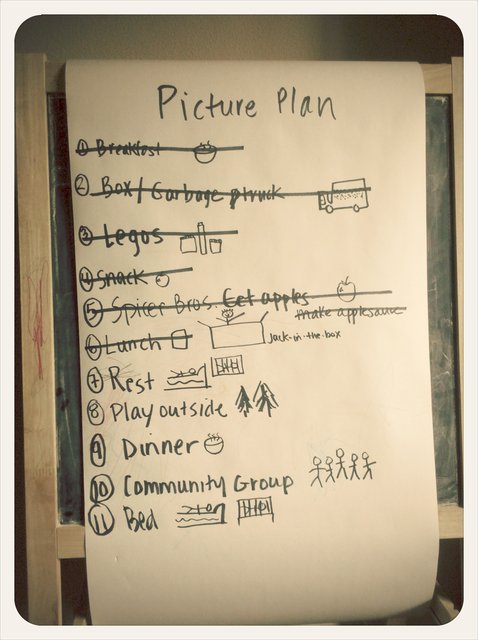 Picture Plan
1 Breakfast
2 Box/Garbage ptruck
3 Legos
4 Snack
5 Spicer Bros. Get apples
make applesauce
6 Lunch
Jack-in-the-box
7 Rest
8 Play outside
9 Dinner
10 Community Group
11 Bed